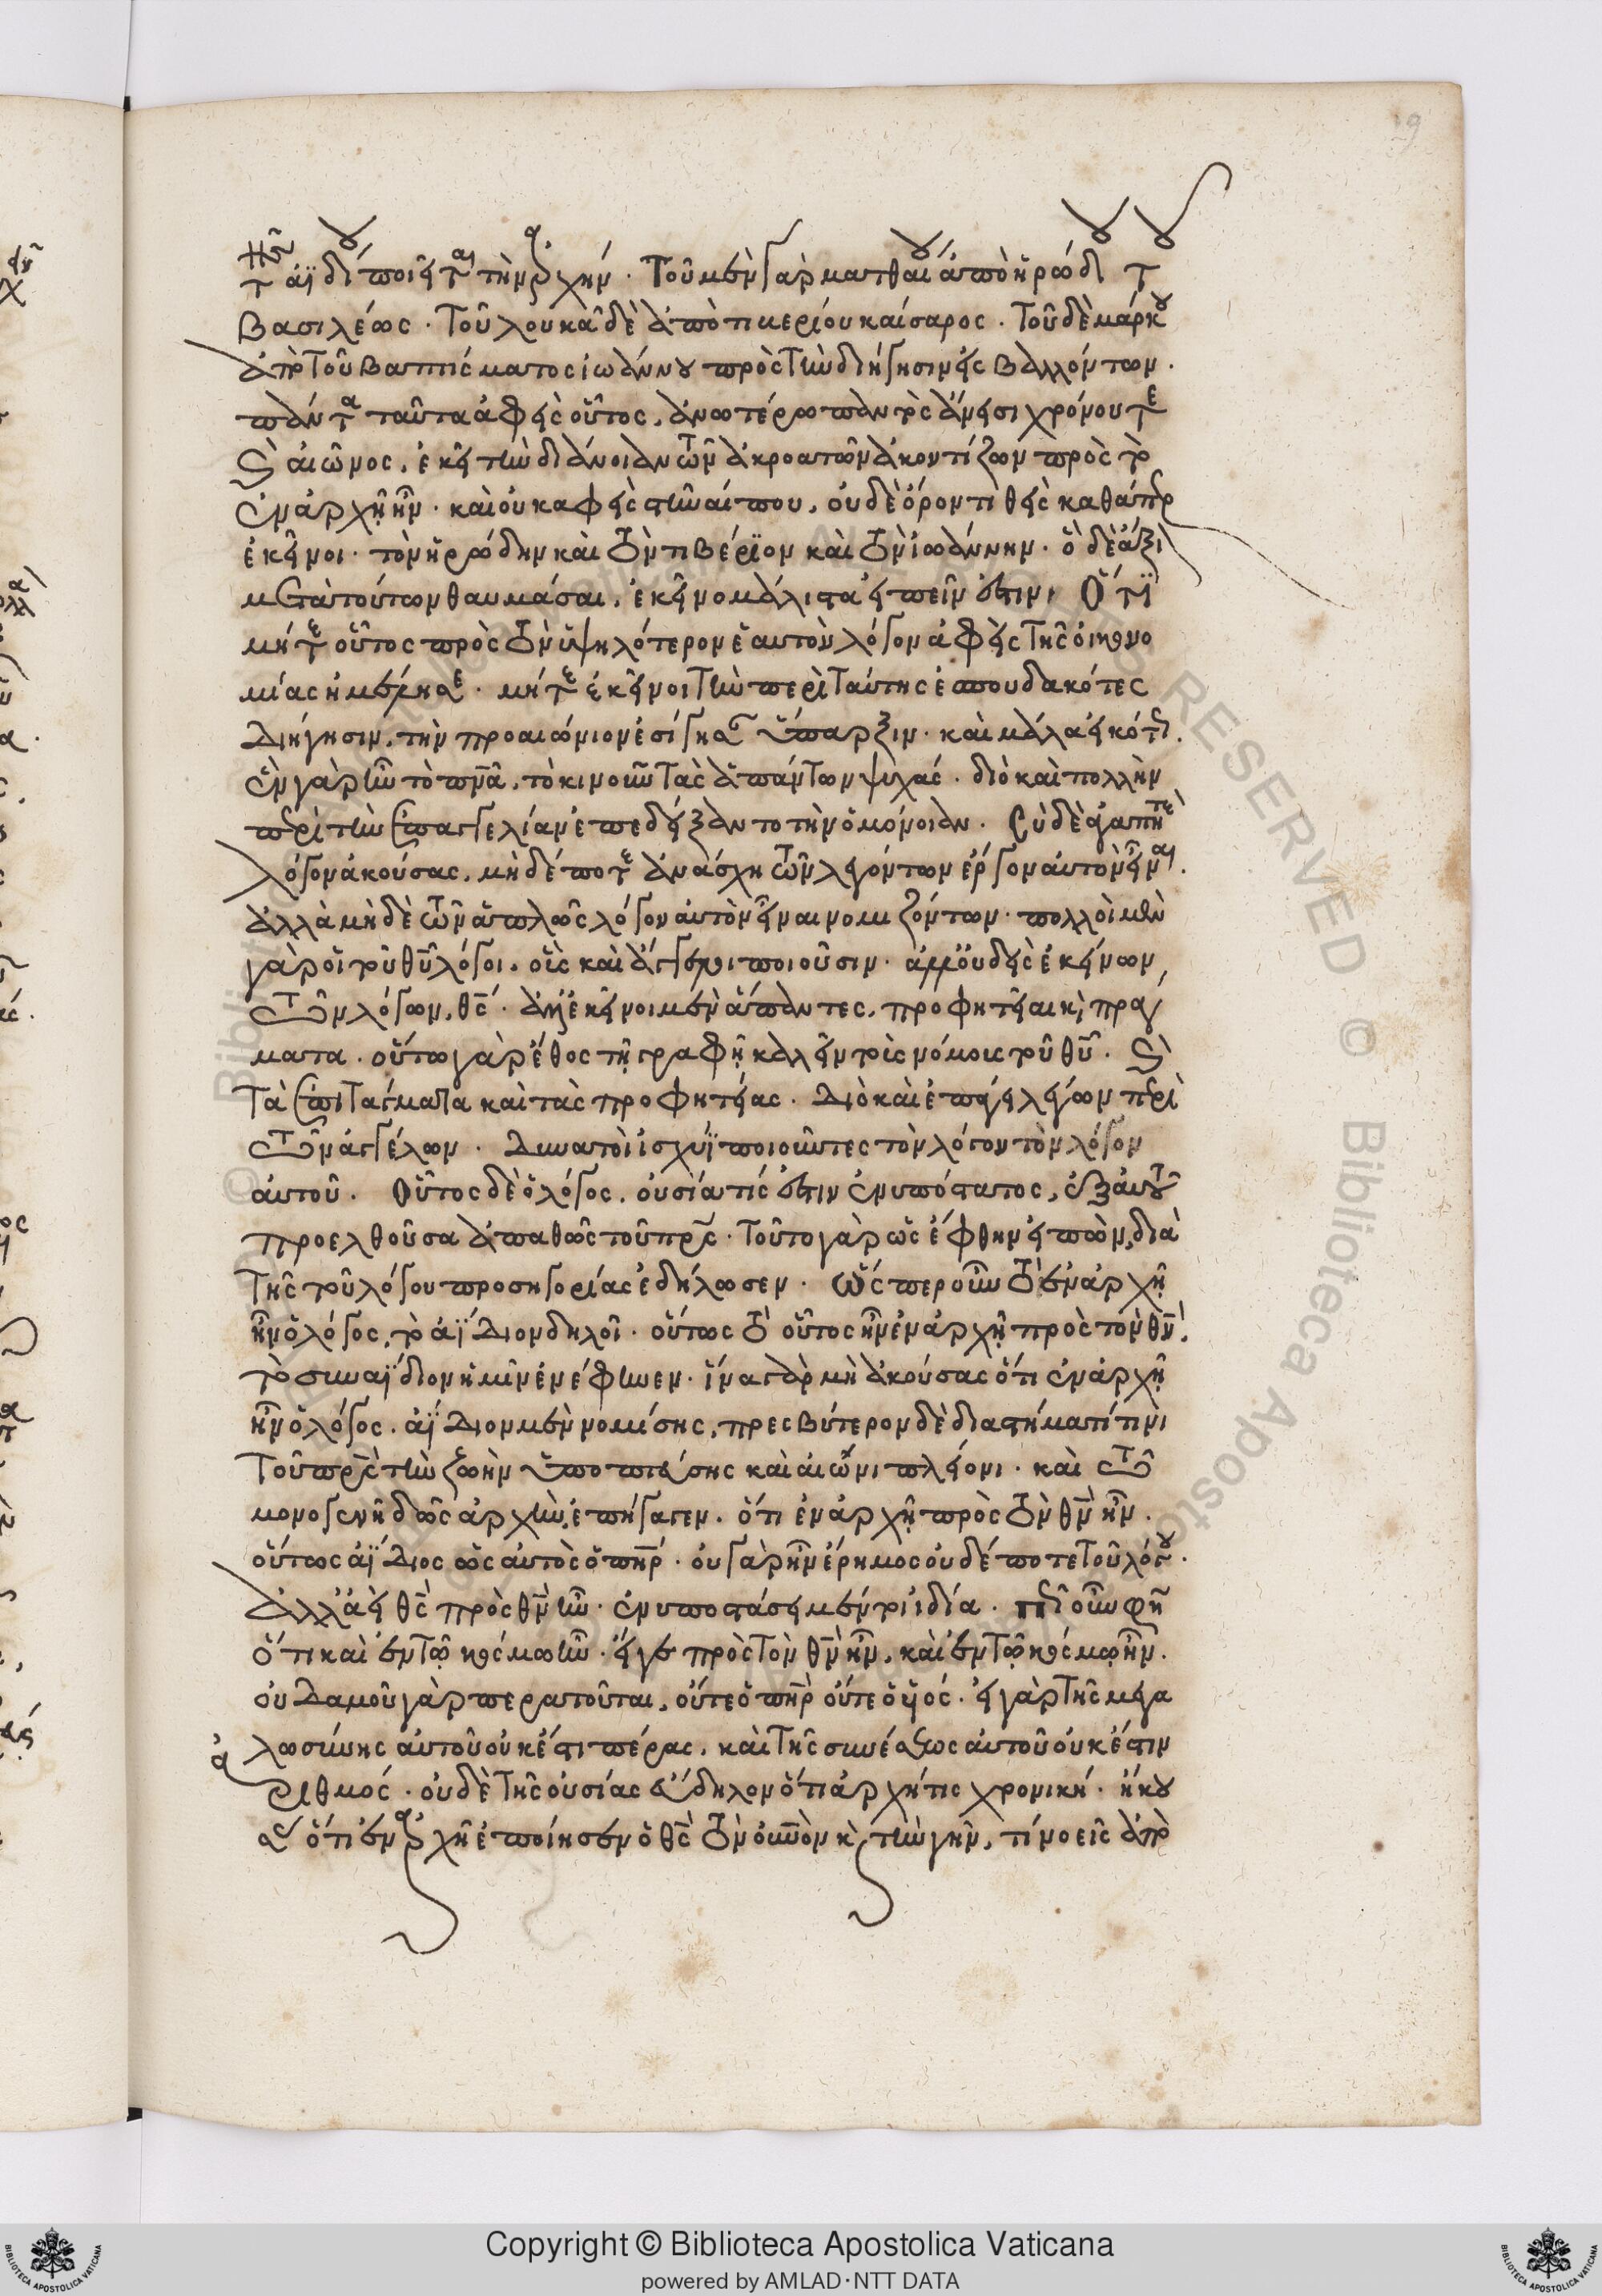 19
τοῦ ἀϊδίου ποιεῖται τὴν ἀρχήν. Τοῦ μὲν γὰρ ματθαίου ἀπὸ ἡρώδου τοῦ
βασιλέως. Τοῦ λουκᾶ δὲ ἀπὸ τιβερίου καίσαρος. Τοῦ δὲ μάρκου
ἀπὸ τοῦ βαπτίσματος ἰωάννου πρὸς τὴν διήγησιν εἰσβαλλόντων.
πάντα ταῦτα ἀφεὶς οὗτος, ἀνωτέρω παντὸς ἄνεισι χρόνου τε
καὶ αἰῶνος, ἐκεῖ τὴν διάνοιαν τῶν ἀκροατῶν ἀκοντίζων πρὸς τὸ
ἐν ἀρχῇ ἦν. καὶ οὐκ ἀφεὶς στῆναί που, οὐδὲ ὅρον τιθεὶς καθάπερ
ἐκεῖνοι τὸν ἡρώδην καὶ τὸν τιβέριον καὶ τὸν ἰωάννην. ὃ δὲ ἄξιον
μετὰ τούτων θαυμάσαι, ἐκεῖνο μάλιστα εἰπεῖν ἐστιν, Ὅτι
μήτε οὗτος πρὸς τὸν ὑψηλότερον ἑαυτὸν λόγον ἀφεὶς τῆς οἰκονο
μίας ἠμέλησε. μήτε ἐκεῖνοι τὴν περὶ ταύτης ἐσπουδακότες
Διήγησιν, τὴν προαιώνιον ἐσίγησαν ὕπαρξιν. καὶ μάλα εἰκότως.
ἓν γὰρ ἦν τὸ πνα, τὸ κινοῦν τὰς ἁπάντων ψυχάς. διὸ καὶ πολλὴν
περὶ τὴν ἐπαγγελίαν ἐπεδείξαντο τὴν ὁμόνοιαν. Σὺ δὲ ἀγαπητὲ
λόγον ἀκούσας, μηδέποτε ἀνάσχῃ τῶν λεγόντων ἔργον αὐτὸν εἶναι.
ἀλλὰ μηδὲ τῶν ἁπλῶς λόγον αὐτὸν εἶναι νομιζόντων. πολλοὶ μὲν
γὰρ οἱ τοῦ θυ λόγοι, οἷς καὶ ἄγγελοι ποιοῦσιν. ἀλλ' οὐδεὶς ἐκείνων
τῶν λόγων, θς. ἀλλ' ἐκεῖνοι μὲν ἅπαντες, προφητεῖαι καὶ προστάγ
ματα. οὕτω γὰρ ἔθος τῇ γραφῇ καλεῖν τοὺς νόμους τοῦ θυ. καὶ
τὰ ἐπιτάγματα καὶ τὰς προφητείας. Διὸ καὶ ἐπήγαγε λέγων περὶ
τῶν ἀγγέλων. Δυνατοὶ ἰσχύϊ ποιοῦντες τὸν λόγον τὸν λόγον
αὐτοῦ. Οὗτος δὲ ὁ λόγος, οὐσία τίς ἐστιν ἐνυπόστατος, ἐξ αὐτοῦ
προελθοῦσα ἀπαθῶς τοῦ πρς. Τοῦτο γὰρ ὡς ἔφθην εἰπὼν, διὰ
τῆς τοῦ λόγου προσηγορίας ἐδήλωσεν. Ὥσπερ οὖν τὸ ἐν ἀρχῇ
ἦν ὁ λόγος, τὸ ἀΐδιον δηλοῖ. οὕτως τὸ οὗτος ἦν ἐν ἀρχῇ πρὸς τὸν θν,
τὸ συναΐδιον ἡμῖν ἐνέφηνεν. ἵνα γὰρ μὴ ἀκούσας ὅτι ἐν ἀρχῇ
ἦν ὁ λόγος, ἀΐδιον μὲν νομίσῃς, πρεσβύτερον δὲ διαστήματί τινι
τοῦ πρς τὴν ζωὴν ὑποπτεύσῃς καὶ αἰῶνι πλείονι. καὶ τῷ
μονογενεῖ δῷς ἀρχὴν, ἐπήγαγεν. ὅτι ἐν ἀρχῇ πρὸς τὸν θν ἦν.
οὕτως ἀΐδιος ὡς αὐτὸς ὁ πηρ. οὐ γὰρ ἦν ἔρημος οὐδέποτε τοῦ λόγου.
ἀλλ' ἀεὶ θς πρὸς θν ἦν. ἐν ὑποστάσει μέντοι ἰδίᾳ. πῶς οὖν φησιν
ὅτι καὶ ἐν τῷ κόσμῳ ἦν. εἴγε πρὸς τὸν θν ἦν, καὶ ἐν τῷ κόσμῳ ἦν.
οὐδαμοῦ γὰρ περατοῦται, οὔτε ὁ πηρ οὔτε ὁ υἱός. εἰ γὰρ τῆς μεγα
λωσύνης αὐτοῦ οὐκ ἔστι πέρας, καὶ τῆς συνέσεως αὐτοῦ οὐκ ἔστιν
ἀριθμός. οὐδὲ τῆς οὐσίας εὔδηλον ὅτι ἀρχή τις χρονική. ἤκου
σας ὅτι ἐν ἀρχῇ ἐποίησεν ὁ θς τὸν οὐνον καὶ τὴν γῆν, τί νοεῖς ἀπὸ
© Biblioteca Apostolica Vaticana
RESERVED © Biblioteca Aposto
Copyright © Biblioteca Apostolica Vaticana
powered by AMLAD·NTT DATA
BIBLIOTECA APOSTOLICA VATICANA
BIBLIOTECA APOSTOLICA VATICANA